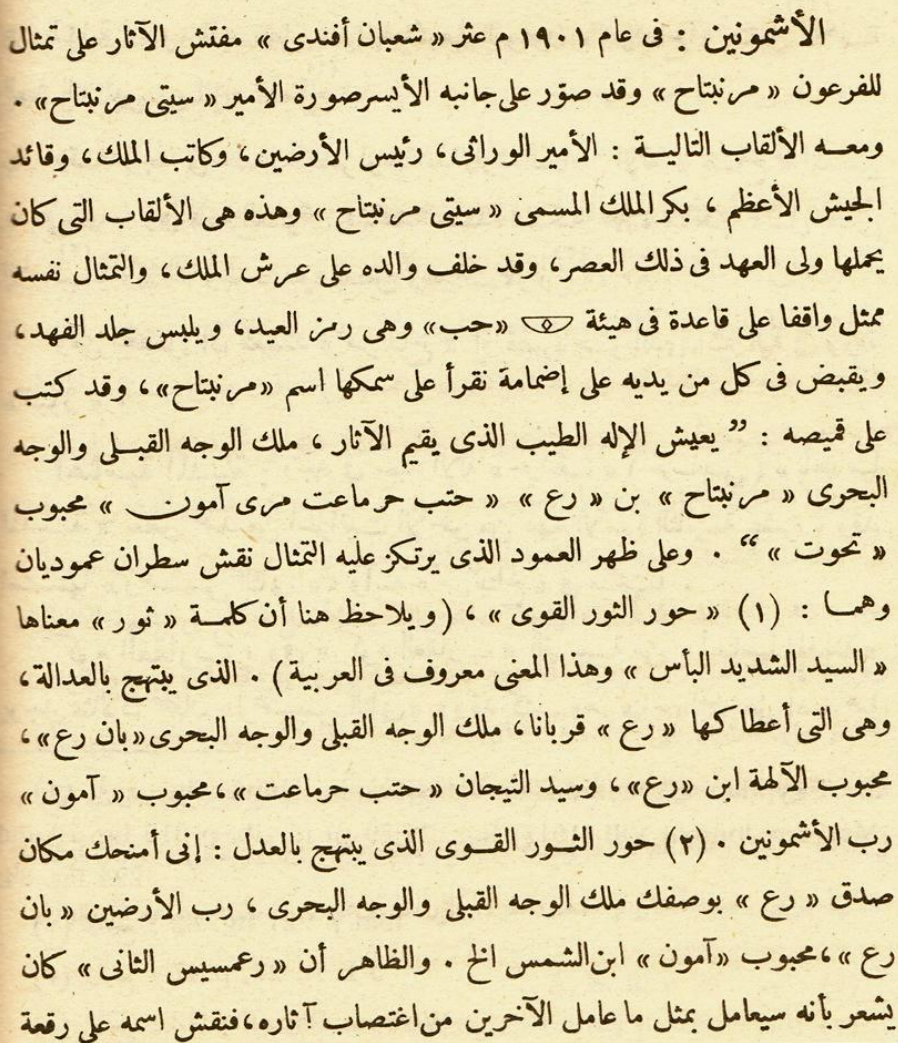 الأشمونين : فى عام ١٩٠١ م عثر « شعبان أفندى » مفتش الآثار على تمثال
للفرعون « مرنبتاح » وقد صوّر على جانبه الأيسر صورة الأمير « سيتى مرنبتاح » .
ومعه الألقاب التالية : الأمير الوراثى، رئيس الأرضين، وكاتب الملك، وقائد
الجيش الأعظم ، بكر الملك المسمى « سيتى مرنبتاح » وهذه هى الألقاب التى كان
يحملها ولى العهد فى ذلك العصر، وقد خلف والده على عرش الملك، والتمثال نفسه
ممثل واقفا على قاعدة فى هيئة «حب» وهى رمز العيد، ويلبس جلد الفهد،
ويقبض فى كل من يديه على إضمامة نقرأ على سمكها اسم «مرنبتاح»، وقد كتب
على قميصه : ” يعيش الإله الطيب الذى يقيم الآثار ، ملك الوجه القبلى والوجه
البحرى « مرنبتاح » بن « رع » « حتب حرماعت مرى آمون » محبوب
« تحوت » “ . وعلى ظهر العمود الذى يرتكز عليه التمثال نقش سطران عموديان
وهما : (١) « حور الثور القوى » ، (ويلاحظ هنا أن كلمة « ثور » معناها
« السيد الشديد البأس » وهذا المعنى معروف فى العربية) . الذى يبتهج بالعدالة،
وهى التى أعطاكها « رع » قربانا، ملك الوجه القبلى والوجه البحرى «بان رع»،
محبوب الآلهة ابن «رع»، وسيد التيجان « حتب حرماعت »، محبوب « آمون »
رب الأشمونين . (٢) حور الثور القوى الذى يبتهج بالعدل : إنى أمنحك مكان
صدق « رع » بوصفك ملك الوجه القبلى والوجه البحرى ، رب الأرضين « بان
رع »، محبوب «آمون » ابن الشمس الخ . والظاهر أن « رعمسيس الثانى » كان
يشعر بأنه سيعامل بمثل ما عامل الآخرين من اغتصاب آثاره، فنقش اسمه على رقعة